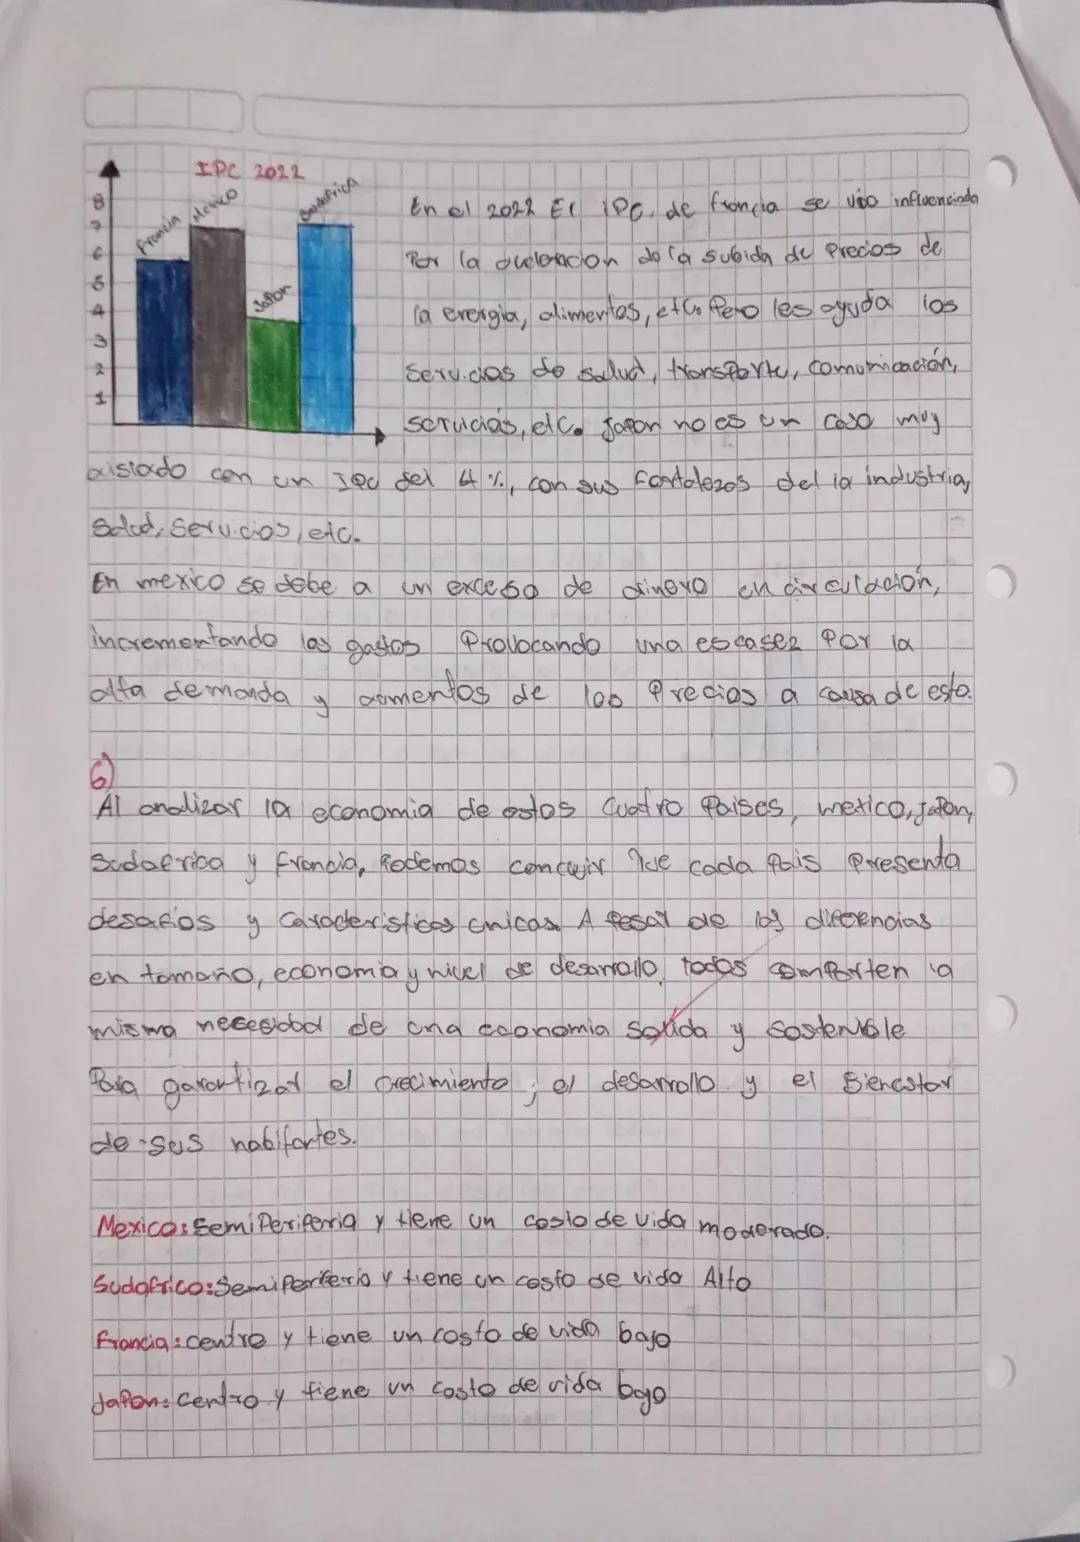 IPC 2022
Francia
Mexico
Japon
Sudafrica
8
7
6
5
4
3
2
1
En el 2022 El IPC. de francia se vio influenciada
Por la aceleracion de la subida de Precios de
la energia, alimentos, etc. Pero les ayuda los
servicios de salud, transporte, comunicación,
servicias, etc. Japon no es un caso muy
aislado con un IPC del 4 %, con sus fortalezas del la industria,
salud, servicios, etc.
En mexico se debe a un exceso de dinero en circulación,
incrementando los gastos Provocando una escasez Por la
alta demanda y aumentos de los Precios a causa de esto.
6)
Al analizar la economia de estos cuatro Paises, mexico, Japon,
Sudafrica y francia, Podemos concluir que cada Pais Presenta
desafios y caracteristicas unicas. A Pesar de las diferencias
en tamaño, economia y nivel de desarrollo, todos comparten la
misma necesidad de una economia solida y sostenible
Para garantizar el crecimiento, el desarrollo y el Bienestar
de sus habitantes.
Mexico: Semiperiferia y tiene un costo de vida moderado.
Sudafrica: Semiperiferia y tiene un costo de vida Alto
Francia: centro y tiene un costo de vida bajo
Japon: Centro y tiene un costo de vida bajo